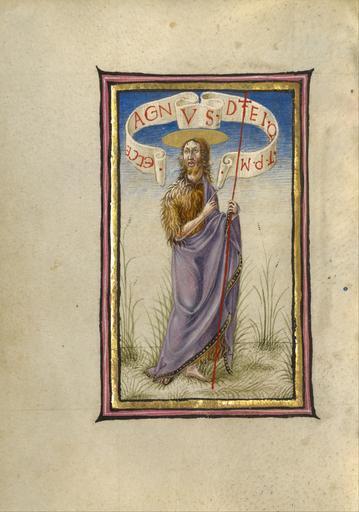 ·ECCE· AGNVS·DEI·Q·T·P·M·